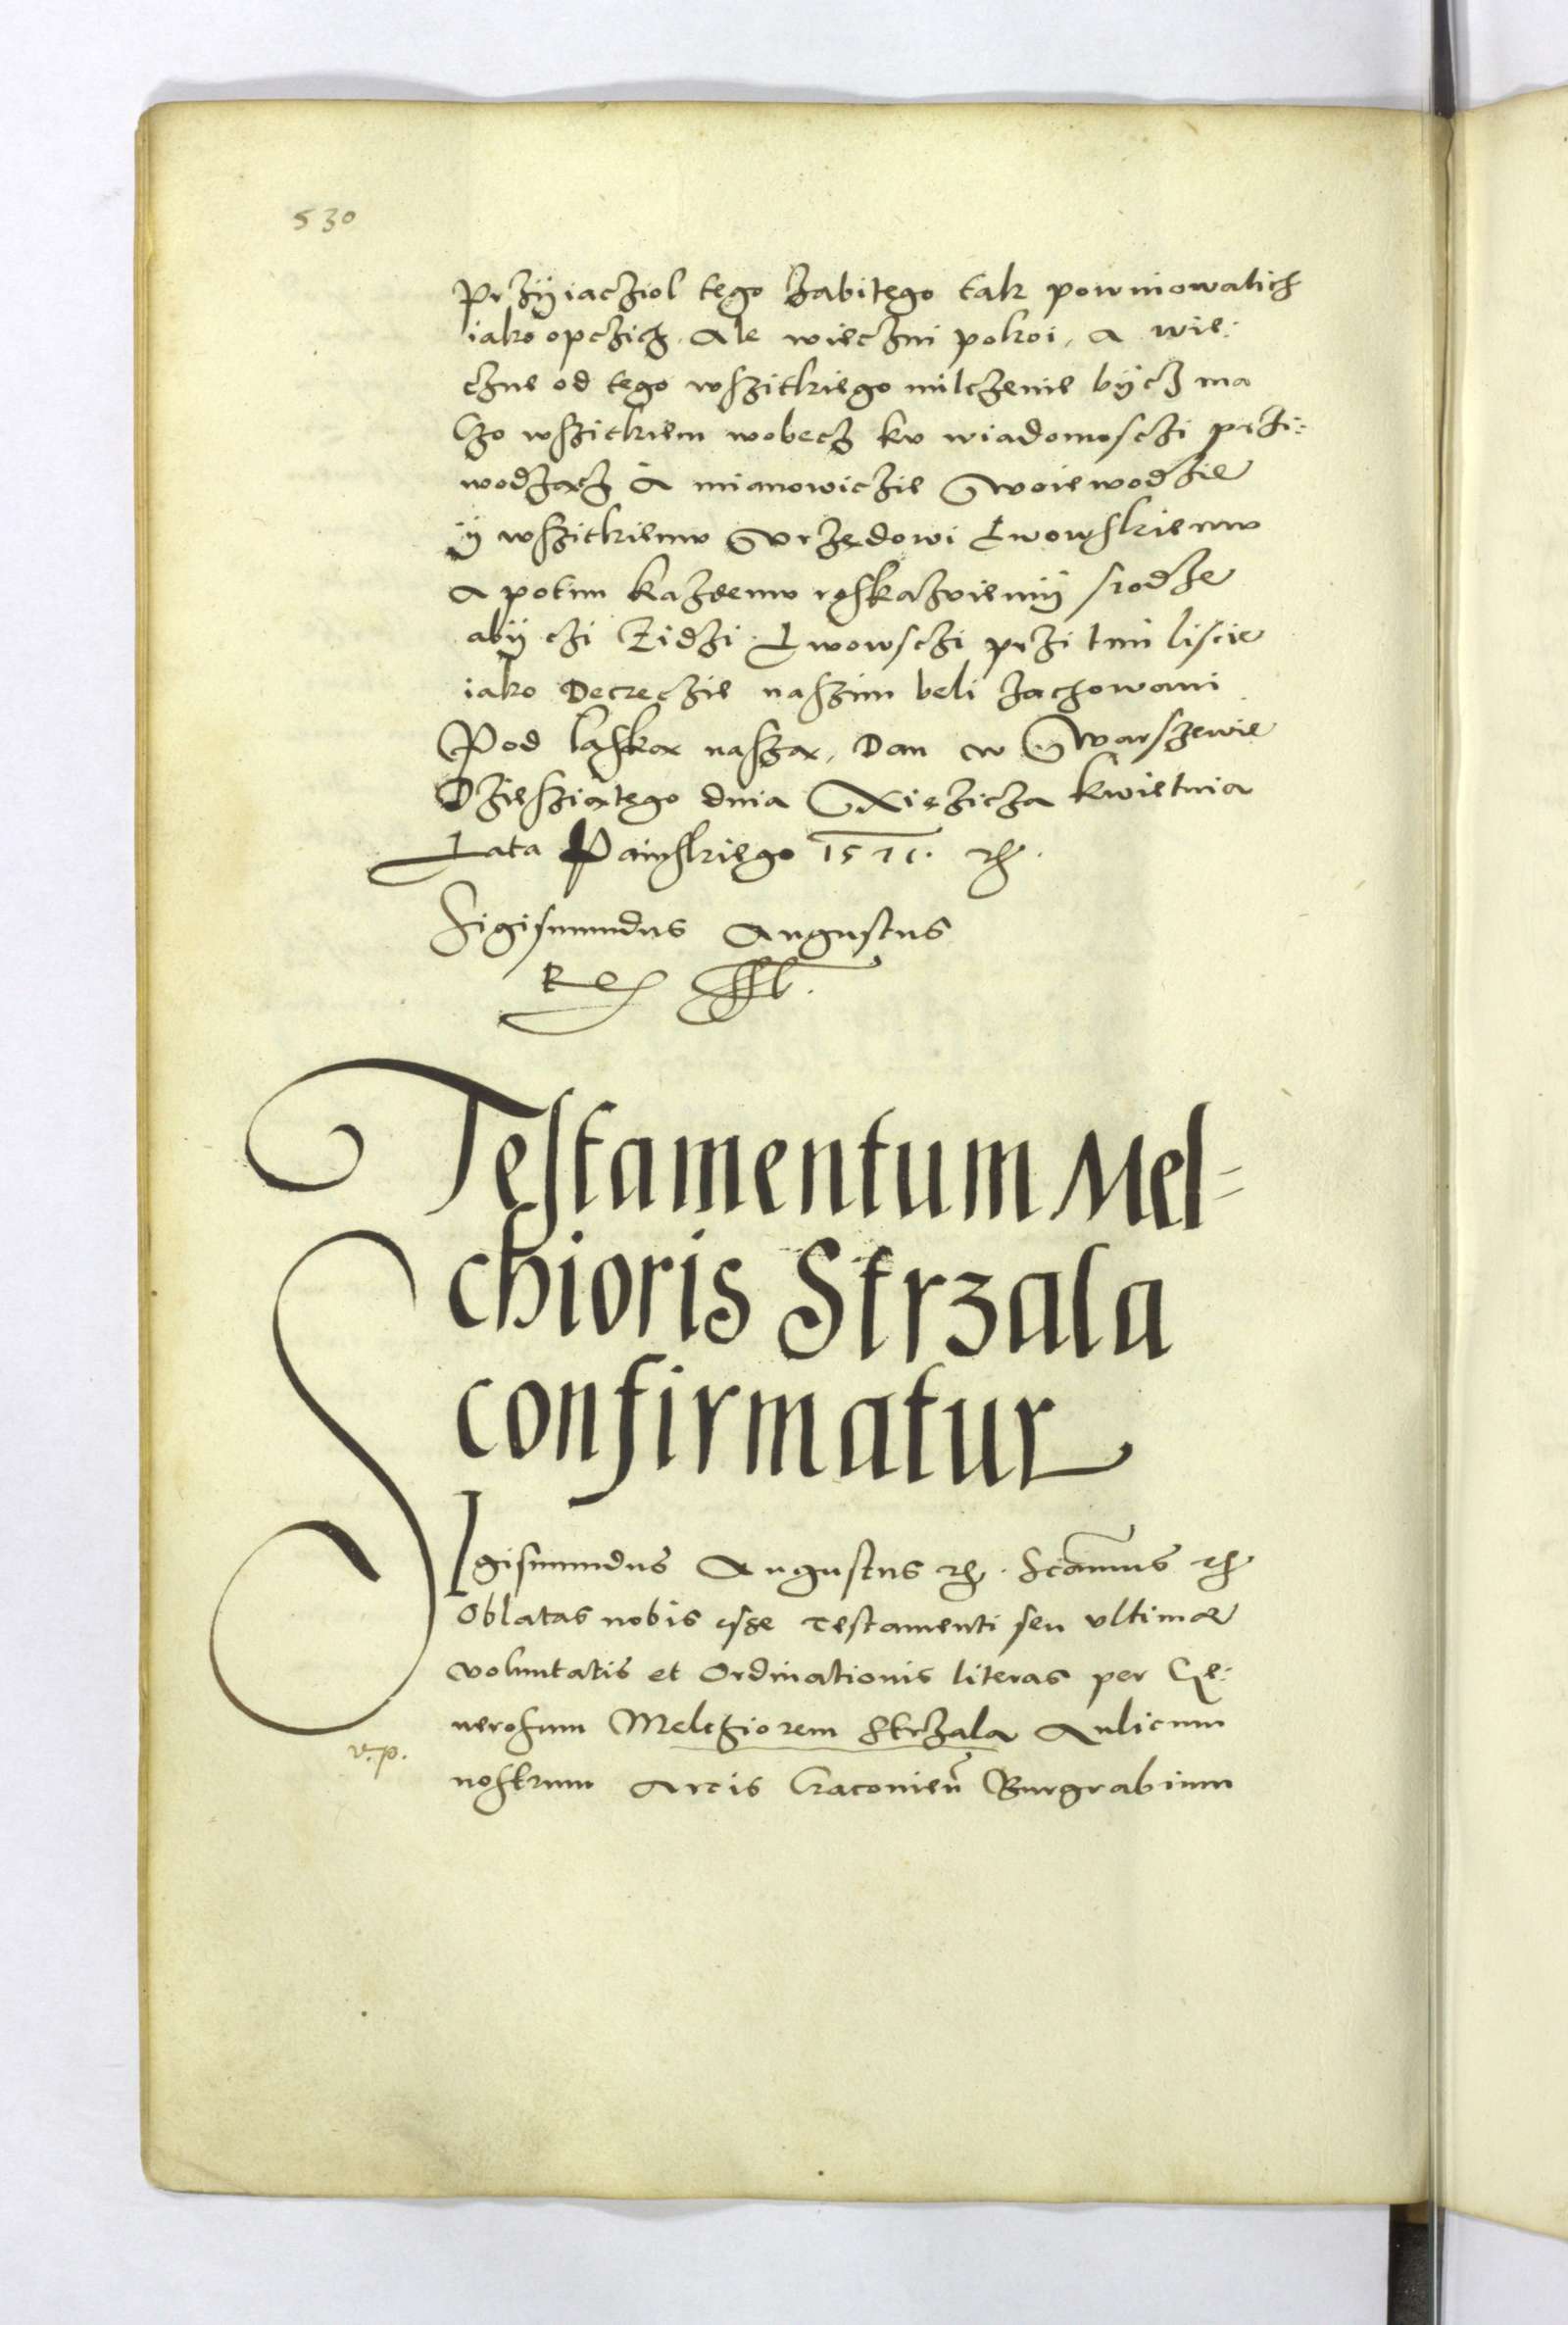 530
Przÿiacziol tego zabitego tak powinowatich
iako opczich. Ale wieczni pokoi, a wie:
czne od tego wszitkiego milczenie bÿcz ma
Czo wszitkiem wobecz ku wiadomosczi przi:
wodzącz A mianowiczie Woiewodzie
ÿ wszitkiemu Vrzędowi Lwowskiemu
A potim każdemu roskazuiemÿ srodze
abÿ czi Zidzi Lwowsczi przi tim liscie
iako Decreczie naszim beli zachowani
Pod łaską naszą, Dan w Warszewie
Dziesziątego dnia Xiezicza kwietnia
Lata Painskiego 1571. etc.
Sigismundus Augustus
Rex sst.
Testamentum Mel-
chioris Strzala
confirmatur
Sigismundus Augustus etc. Scamus etc
Oblatas nobis esse Testamenti seu vltimae
voluntatis et Ordinationis literas per Ge:
nerosum Melchiorem Strzala Aulicum
v.p.
nostrum Arcis Cracovien Burgrabium